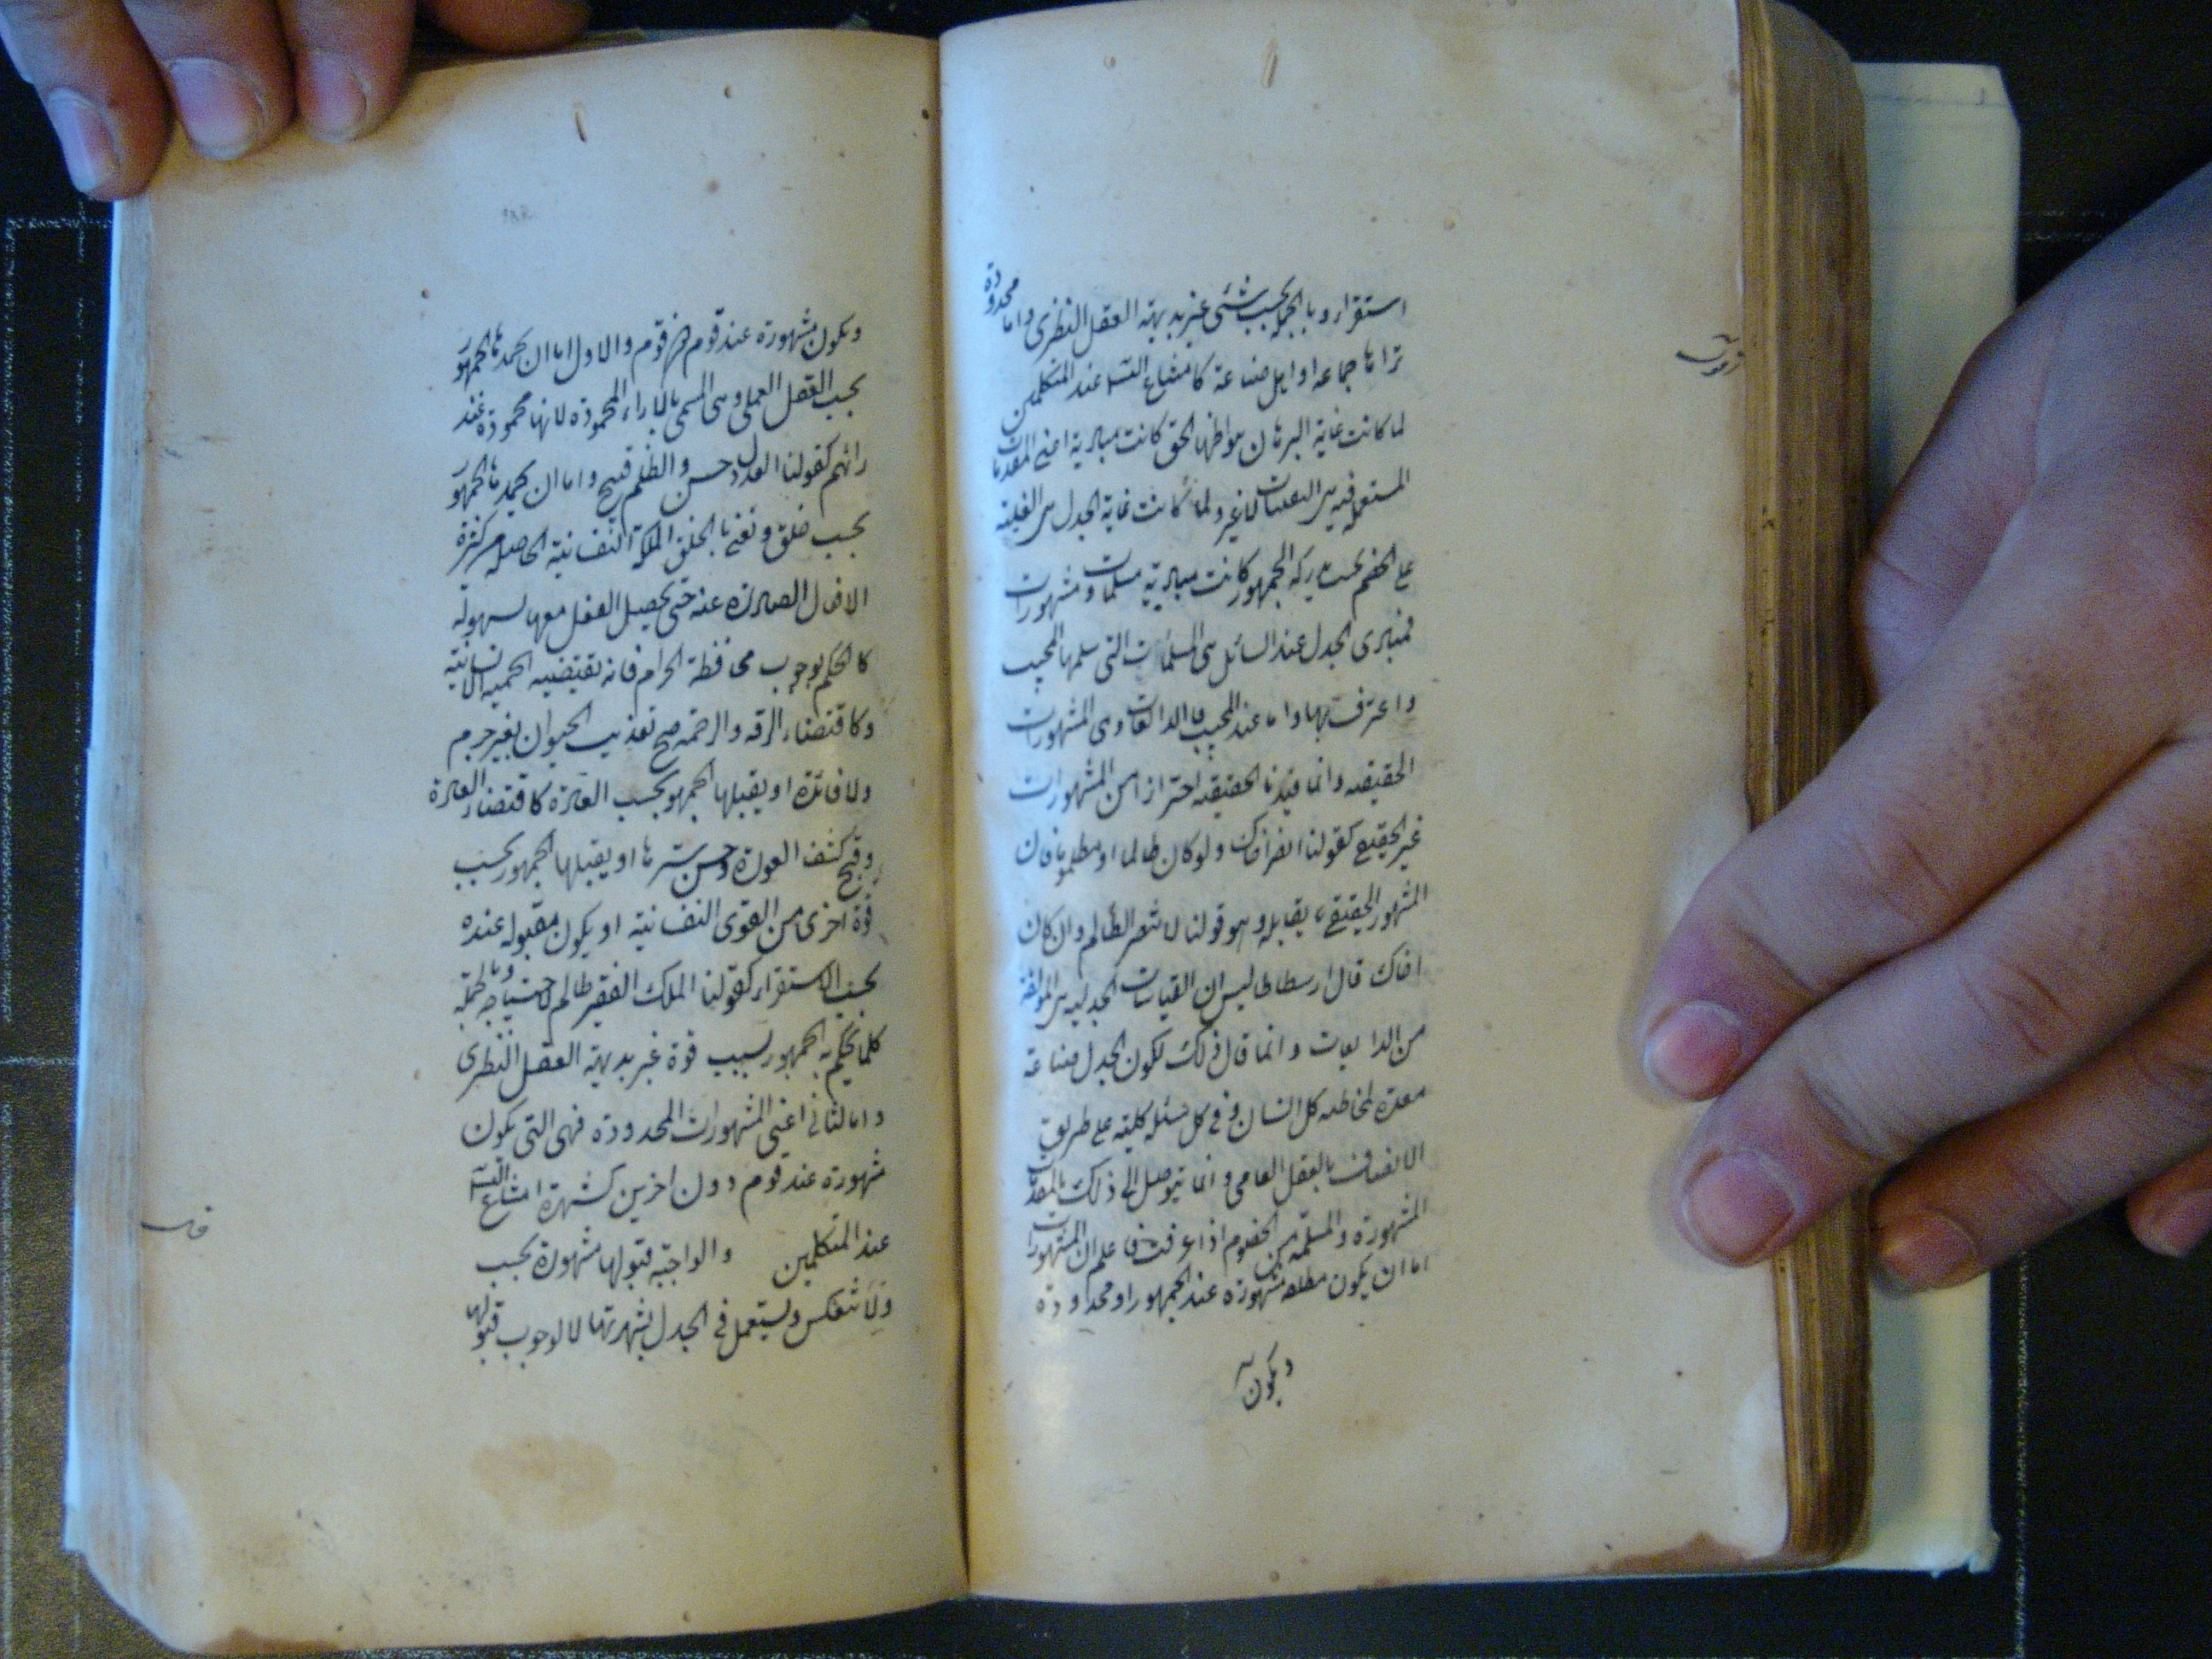 استقرار و بالجملة بحسب شئ غير بديهة العقل النظرى و اما محدودة
تراها جماعه اوايل صناعة كامتناع التسـ عند المتكلمين
لما كانت غاية البرهان هو اظهار الحق كانت مباديه اعنى المقدمات
المستعملة فيه هى اليقينيات لا غير و لما كانت غاية الجدل هى الغلبة
على الخصم بحسب ما يدركه الجمهور كانت مباديه مسلمات و مشهورات
فمبادى الجدل عند السائل هى المسلمات التى سلمها المجيب
و اعترف بها و اما عند المجيب فالذايعات و هى المشهورات
الحقيقيه و انما قيدنا الحقيقيه احترازا من المشهورات
غير الحقيقيه كقولنا انصر اخاك و لو كان ظالما او مظلوما فان
المشهور الحقيقى يقابله و هو قولنا لا تنصر الظالم و ان كان
اخاك قال ارسطاطاليس ان القياسات الجدليه هى المولفة
من الذايعات و انما قال ذلك لكون الجدل صناعة
معدة لمخاطبه كل انسان و فى كل مسئله كلية على طريق
الانصاف بالعقل العامى و انما يتوصل الى ذلك بالمقدمات
المشهورة و المسلمة من الخصوم اذا عرفت فاعلم ان المشهورات
اما ان يكون مطلقه مشهورة عند الجمهور او محدودة
و يكون
و يكون مشهورة عند قوم قوم و الاول اما ان يحمدها الجمهور
بحسب العقل العملى و هى المسمى بالاراء المحمودة لانها محمودة عند
رائهم كقولنا العدل حسن و الظلم قبيح و اما ان يحمدها الجمهور
بحسب خلق و نعنى بالخلق الملكة النفسانية الحاصلة من كثرة
الافعال الصادرة عنه حتى يحصل الفعل معها بسهولة
كالحكم بوجوب محافظة الحرام فانه تقتضيه الحمية الانسانية
و كاقتضاء الرقه و الرحمه قبح تعذيب الحيوان بغير جرم
و لا فائدة او يقبلها الجمهور بحسب العادة كاقتضاء العادة
و قبح كشف العورة و حسن سترها او يقبلها الجمهور بحسب
قوة اخرى من القوى النفسانية او يكون مقبوله عنده
بحسب الاستقرار كقولنا الملك الفقير ظالم لاحتياجه و بالجملة
كلما يحكم به الجمهور بسبب قوة غير بديهة العقل النظرى
و اما الثانى اعنى المشهورات المحدودة فهى التى يكون
مشهورة عند قوم دون اخرين كشهرة امتناع التسـ
عند المتكلمين و الواجبة قبولها مشهورة بحسب
و لا تنعكس و يستعمل فى الجدل لشهرتها لا لوجوب قبولها